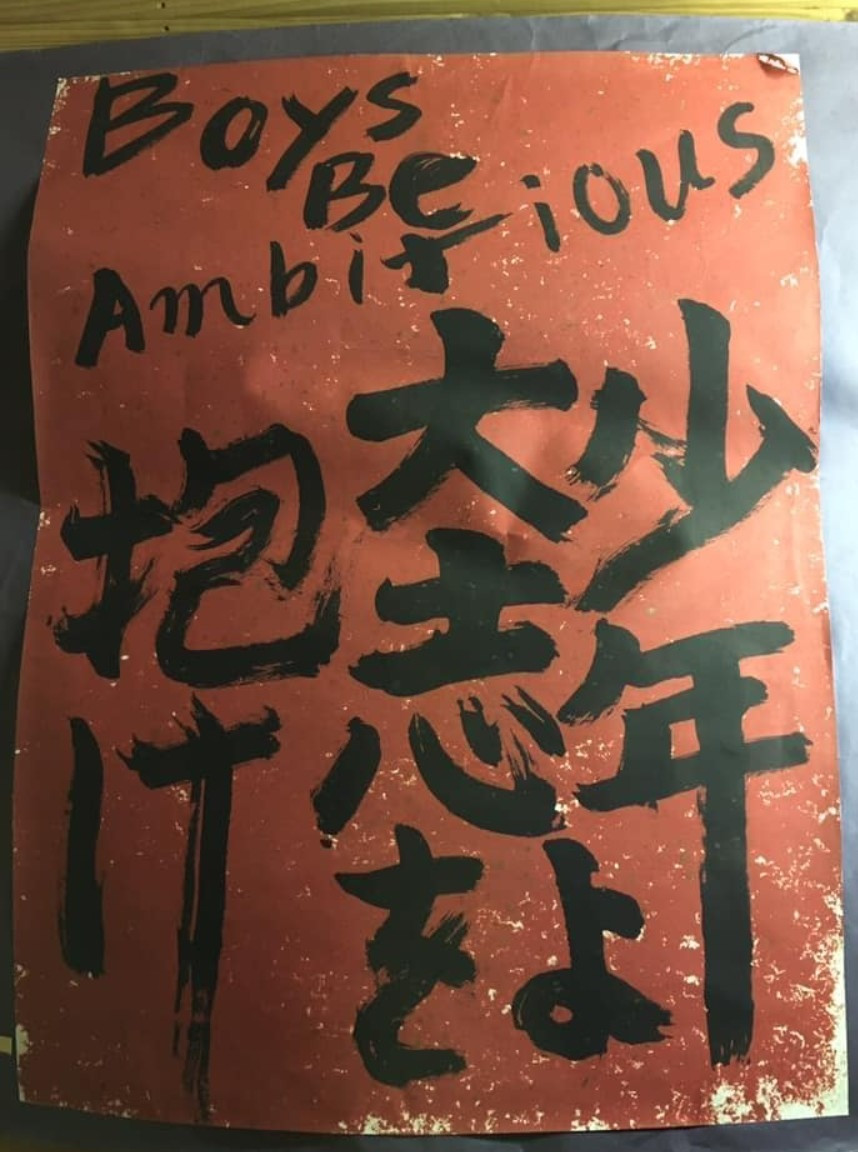 Boys
Be
Ambitious
少年よ
大志を
抱け